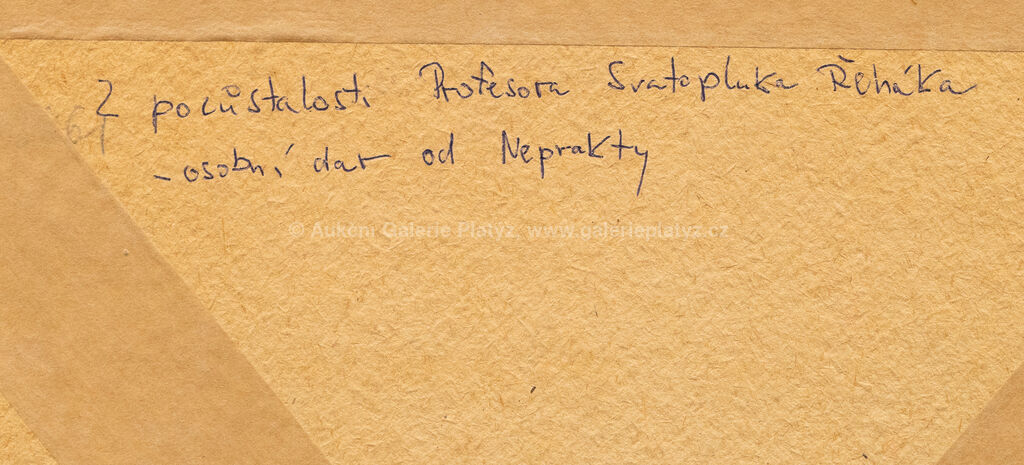 Z pocůstalosti Profesora Svatopluka Řeháka
- osobní dar od Neprakty
© Aukční Galerie Platýz, www.galerieplatyz.cz